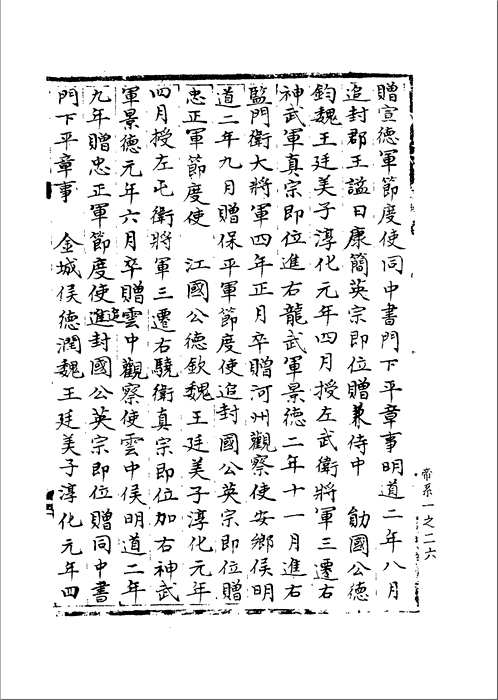 贈宣德軍節度使同中書門下平章事明道二年八月
追封郡王諡曰康簡英宗即位贈兼侍中　勛國公德
鈞魏王廷美子淳化元年四月授左武衛將軍三遷右
神武軍真宗即位進右龍武軍景德二年十一月進右
監門衛大將軍四年正月卒贈河州觀察使安鄉侯明
道二年九月贈保平軍節度使追封國公英宗即位贈
忠正軍節度使　江國公德欽魏王廷美子淳化元年
四月授左屯衛將軍三遷右驍衛真宗即位加右神武
軍景德元年六月卒贈雲中觀察使追雲中侯明道二年
九年贈忠正軍節度使進封國公英宗即位贈同中書
門下平章事　金城侯德潤魏王廷美子淳化元年四
帝系一之二六